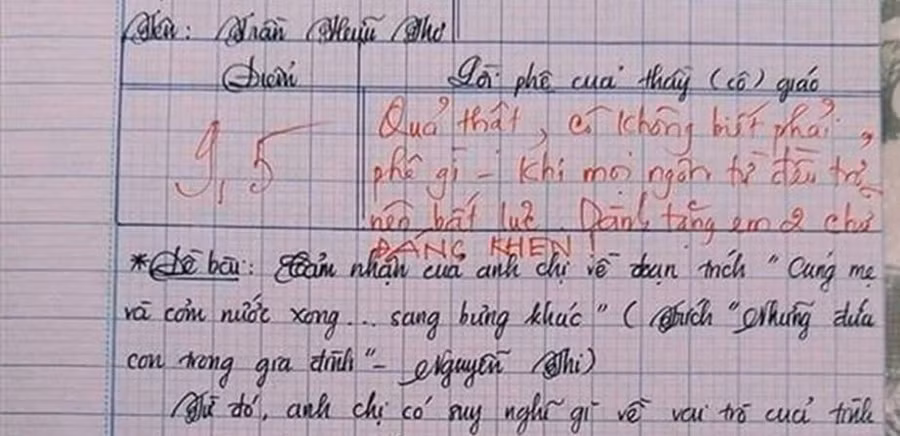 Tên: Trần Hữu Thơ
Điểm
Lời phê của thầy (cô) giáo
9,5
Quả thật, cô không biết phải
phê gì - khi mọi ngôn từ đều trở
nên bất lực. Dành tặng em 2 chữ
ĐÁNG KHEN!
*Đề bài: Cảm nhận của anh chị về đoạn trích "Cúng mẹ
và cơm nước xong... sang bưng khác" (trích "Những đứa
con trong gia đình" - Nguyễn Thi)
Từ đó, anh chị có suy nghĩ gì về vai trò của tình